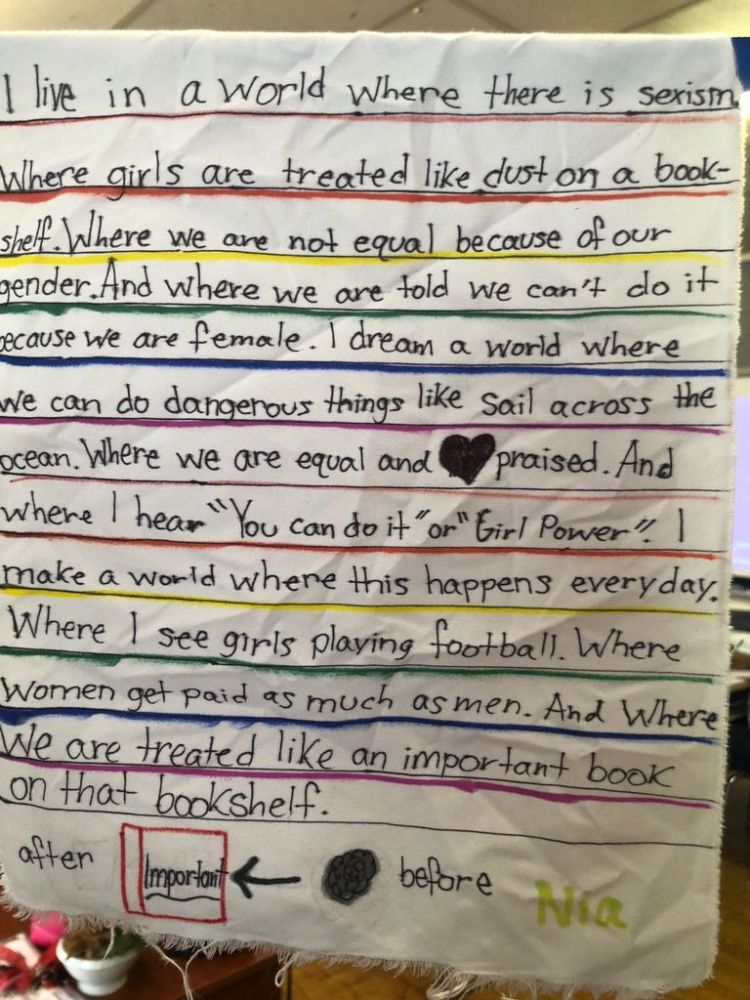 I live in a world where there is sexism.
Where girls are treated like dust on a book-
shelf. Where we are not equal because of our
gender. And where we are told we can't do it
because we are female. I dream a world where
we can do dangerous things like sail across the
ocean. Where we are equal and praised. And
where I hear "You can do it" or "Girl Power". I
make a world where this happens everyday.
Where I see girls playing football. Where
Women get paid as much as men. And Where
We are treated like an important book
on that bookshelf.
after Important before Nia